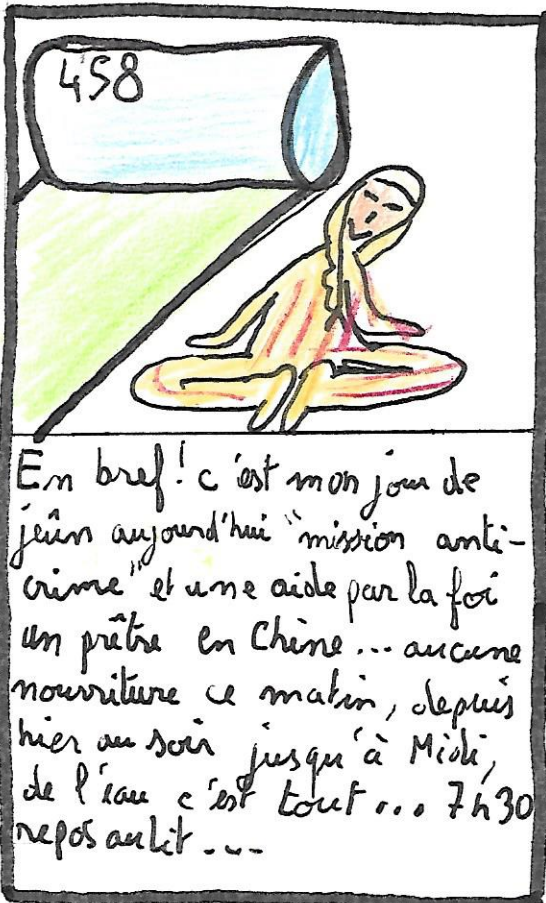 458
En bref! c'est mon jour de
jeûn aujourd'hui "mission anti-
crime" et une aide par la foi
un prêtre en Chine... aucune
nourriture ce matin, depuis
hier au soir jusqu'à Midi,
de l'eau c'est tout... 7h30
repos au lit...